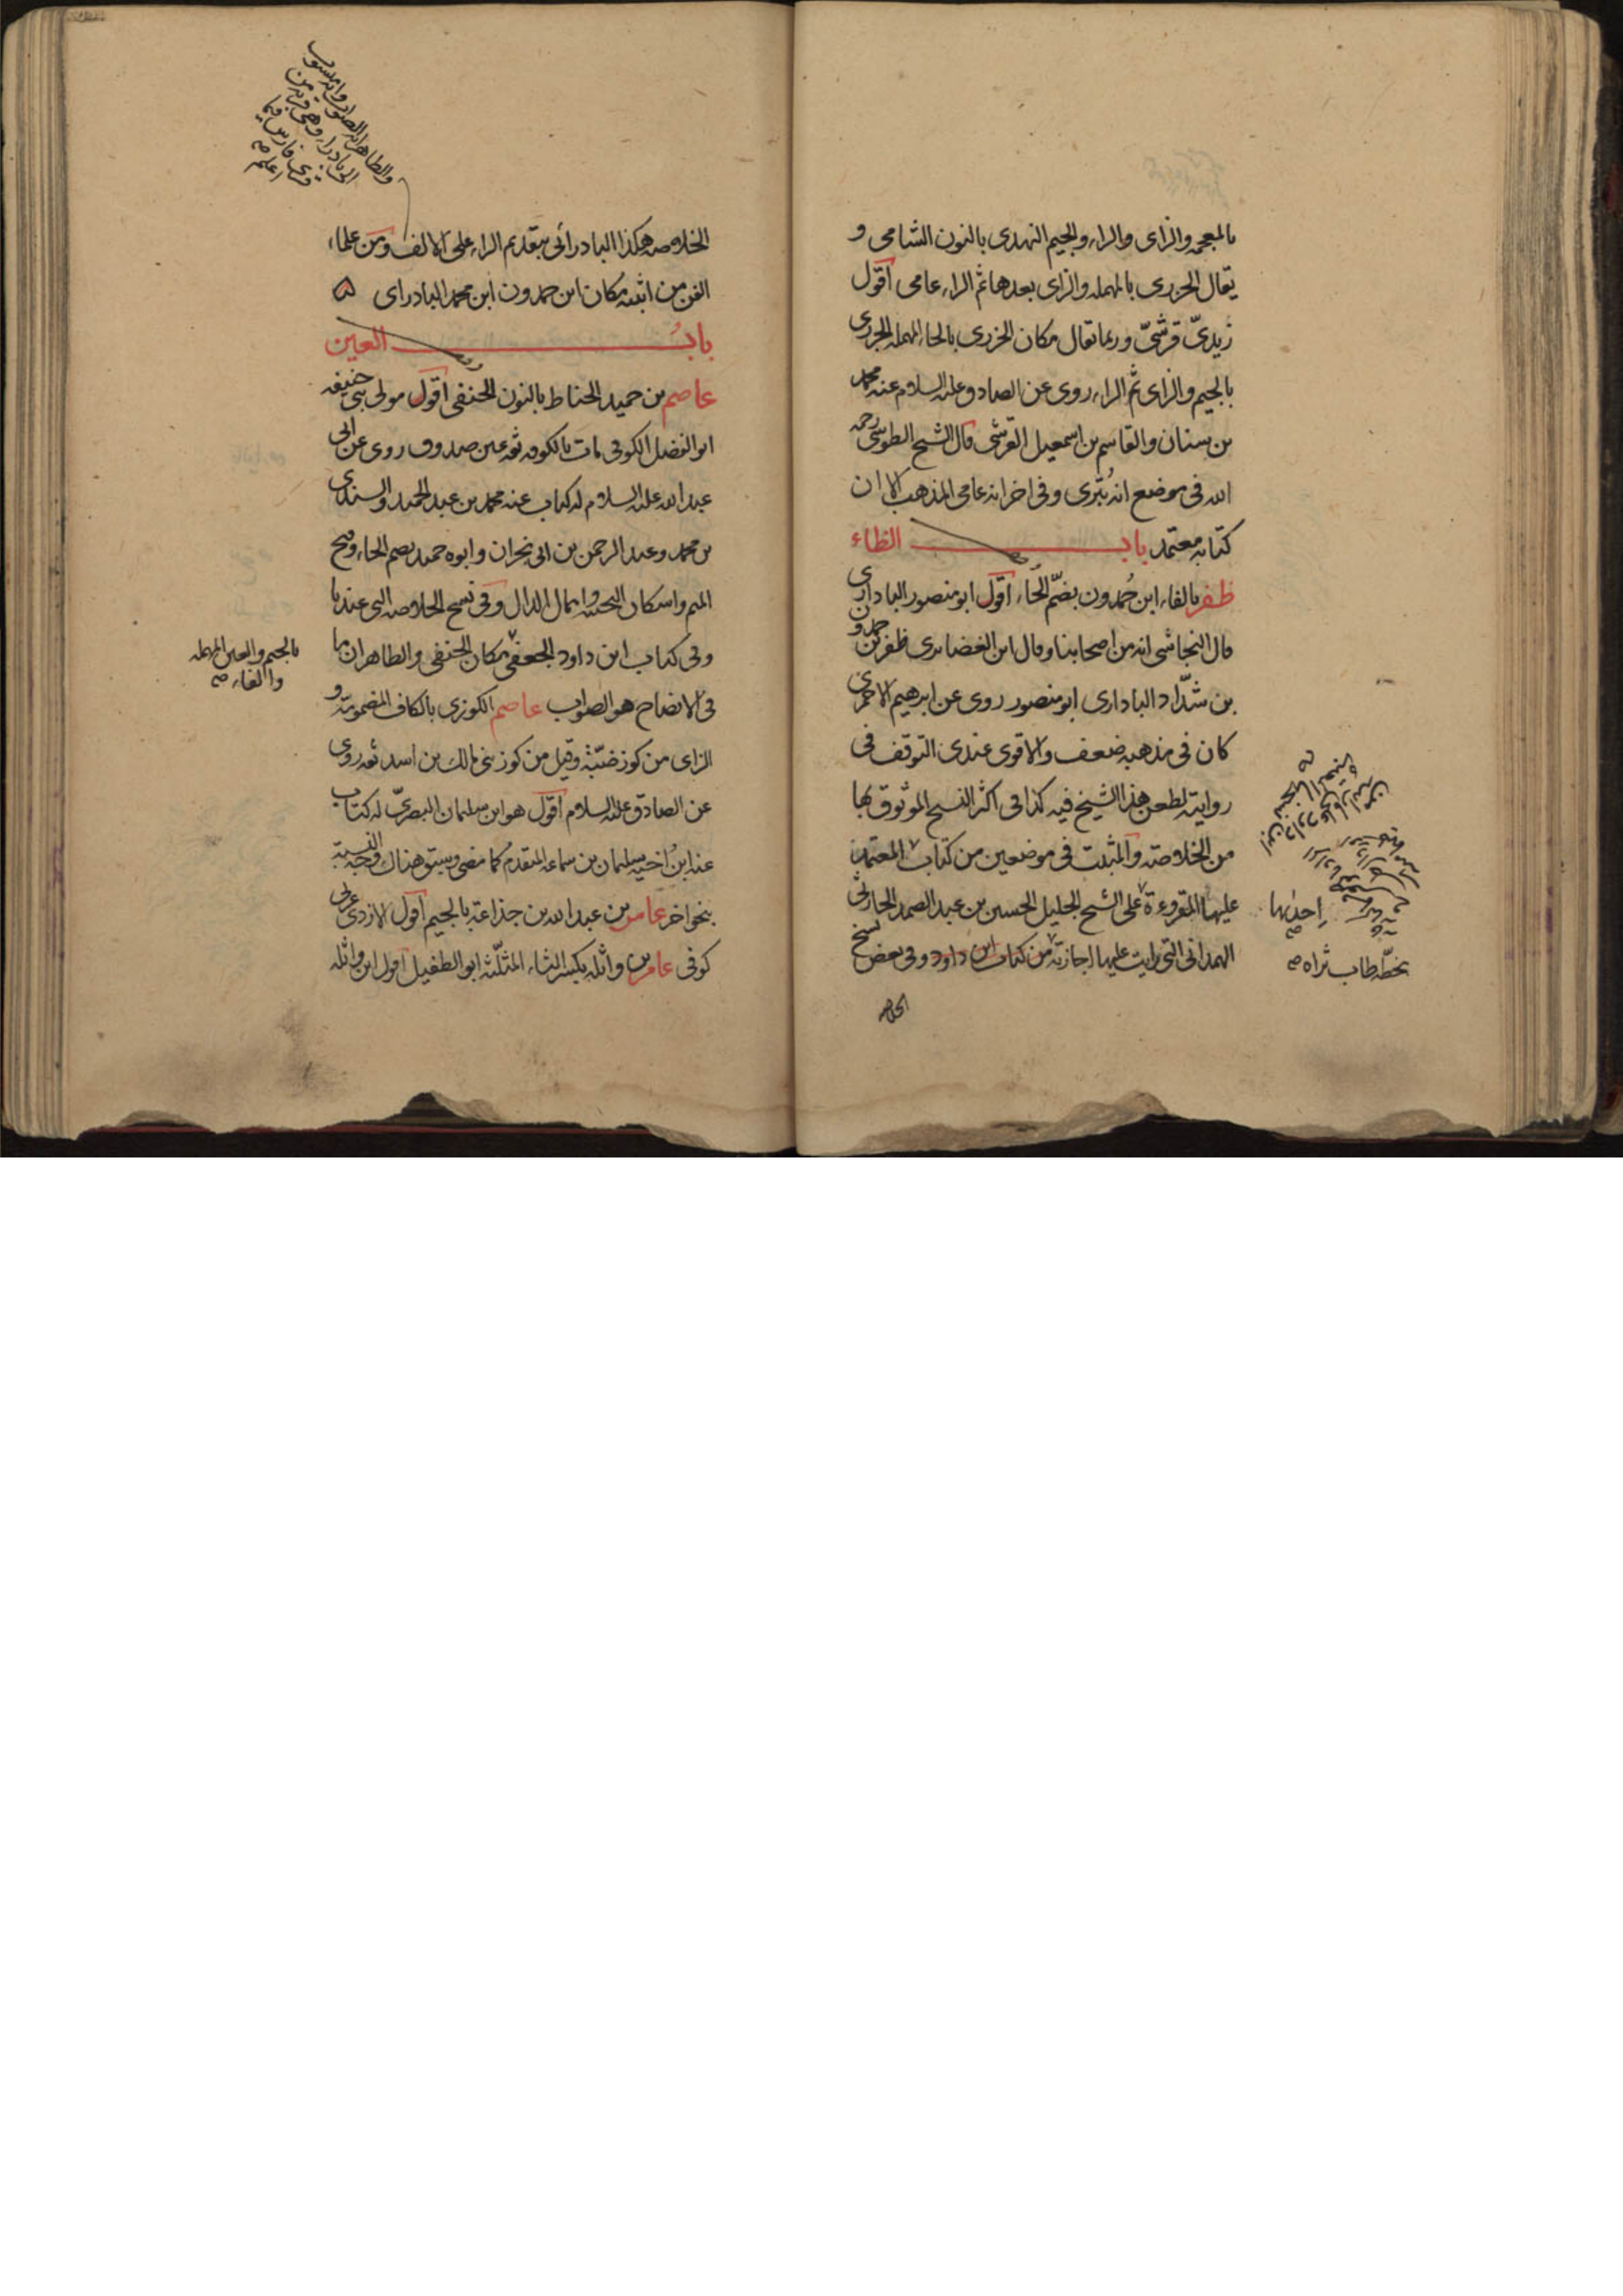 بالمعجمه والزاى والراء والجيم النهدى بالنون الشامى و
يقال الحزرى بالمهمله والزاى بعدها ثم الراء عامى اقول
زيدىّ قرشىّ وربما تقال مكان الخزرى بالحاء المهمله الجزرى
بالجيم والزاى ثم الراء روى عن الصادق عليه السلام عنه محمد
بن سنان والقاسم بن اسمعيل القرشى قال الشيخ الطوسى رحمه
الله فى موضع انه بُترى وفى اخر انه عامى المذهب الا ان
كتابه معتمد باب الظاء
ظفر بالفاء ابن حُمدون بضمّ الحاء اقول ابو منصور البادارى
قال النجاشى انه من اصحابنا وقال ابن الغضايرى ظفر بن حمدون
بن شدّاد البادارى ابو منصور روى عن ابرهيم الاحمرى
كان فى مذهبه ضعف والاقوى عندى التوقف فى
روايته لطعن هذا الشيخ فيه كذا فى اكثر النسخ الموثوق بها
من الخلاصة والمثبت فى موضعين من كتاب المعتمد
عليها المقروءة على الشيخ الجليل الحسين بن عبد الصمد الحارثى
الهمدانى التى رايت عليها اجازته من كتاب ابن داود وفى بعض نسخ
الخلاصه
احديها
بخطّه طاب ثراه صح
الخلاصه هكذا البادرائى بتقديم الراء على الالف ومن علماء
الفن من اثبته مكان ابن حمدون ابن محمد البادراى
بابُ العين
عاصم بن حميد الحناط بالنون الحنفى اقول مولى بنى حنيفه
ابو الفضل الكوفى مات بالكوفه ثقه عين صدوق روى عن ابى
عبد الله عليه السلام له كتاب عنه محمد بن عبد الحميد والسندى
بن محمد وعبد الرحمن بن ابى نجران وابوه حميد بضم الحاء وفتح
الميم واسكان التحتيه واهمال الدال وفى نسخ الخلاصه التى عندنا
وفى كتاب ابن داود الجعفى مكان الحنفى والظاهر ان ما
فى الايضاح هو الصواب عاصم الكوزى بالكاف المضمومة و
الزاى من كوز ضبّة وقيل من كوز بنى مالك بن اسد ثقه روى
عن الصادق عليه السلام اقول هو ابن سليمان البصرىّ له كتاب
عنه ابنُ اخيه سليمان بن سماعه المتقدم كما مضى وسبق هناك وجه النسبة
بنحو اخر عامر بن عبد الله بن جذاعة بالجيم اقول الازدى عربى
كوفى عامر بن واثله بكسر الثاء المثلّثه ابو الطفيل اقول ابن واثله
والظاهر انه الصواب وانه منسوب
الى بادرا، وهى قرية من
قرى فارس فيما
اعلم صح
بالجيم والعين المهمله
والفاء صح